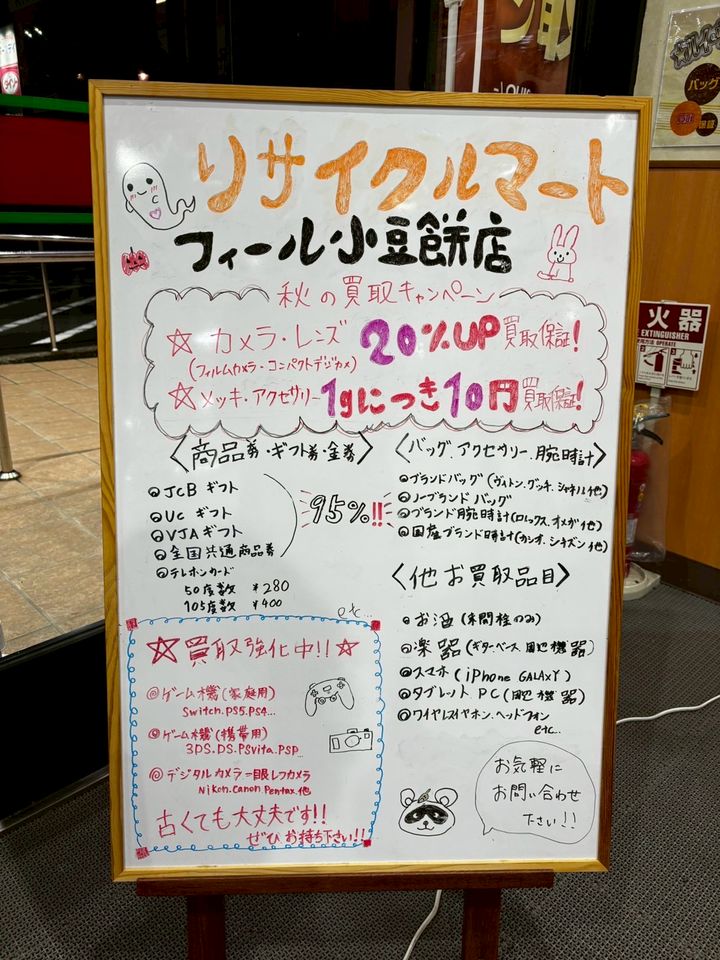 リサイクルマート
フィール小豆餅店
秋の買取キャンペーン
☆ カメラ・レンズ 20%UP 買取保証!
(フィルムカメラ・コンパクトデジカメ)
☆ メッキ・アクセサリー 1gにつき10円 買取保証!
〈商品券・ギフト券・金券〉
◎JCB ギフト
◎UC ギフト
◎VJA ギフト
◎全国共通商品券
95%!!
◎テレホンカード
50度数 ¥280
105度数 ¥400
etc...
☆買取強化中!!☆
◎ゲーム機(家庭用)
Switch.PS5.PS4...
◎ゲーム機(携帯用)
3DS.DS.PSvita.PSP...
◎デジタルカメラ一眼レフカメラ
Nikon.Canon.Pentax.他
古くても大丈夫です!!
ぜひ お持ち下さい!!
〈バッグ.アクセサリー.腕時計〉
◎ブランドバッグ(ヴィトン.グッチ.シャネル他)
◎ノーブランド バッグ
◎ブランド腕時計(ロレックス.オメガ他)
◎国産ブランド時計(カシオ.シチズン他)
〈他お買取品目〉
◎お酒(未開栓のみ)
◎楽器(ギター.ベース.周辺機器)
◎スマホ(iPhone GALAXY)
◎タブレット PC(周辺機器)
◎ワイヤレスイヤホン.ヘッドフォン
etc...
お気軽に
お問い合わせ
下さい!!
火器
EXTINGUISHER
使用方法 OPERATE
バッグ